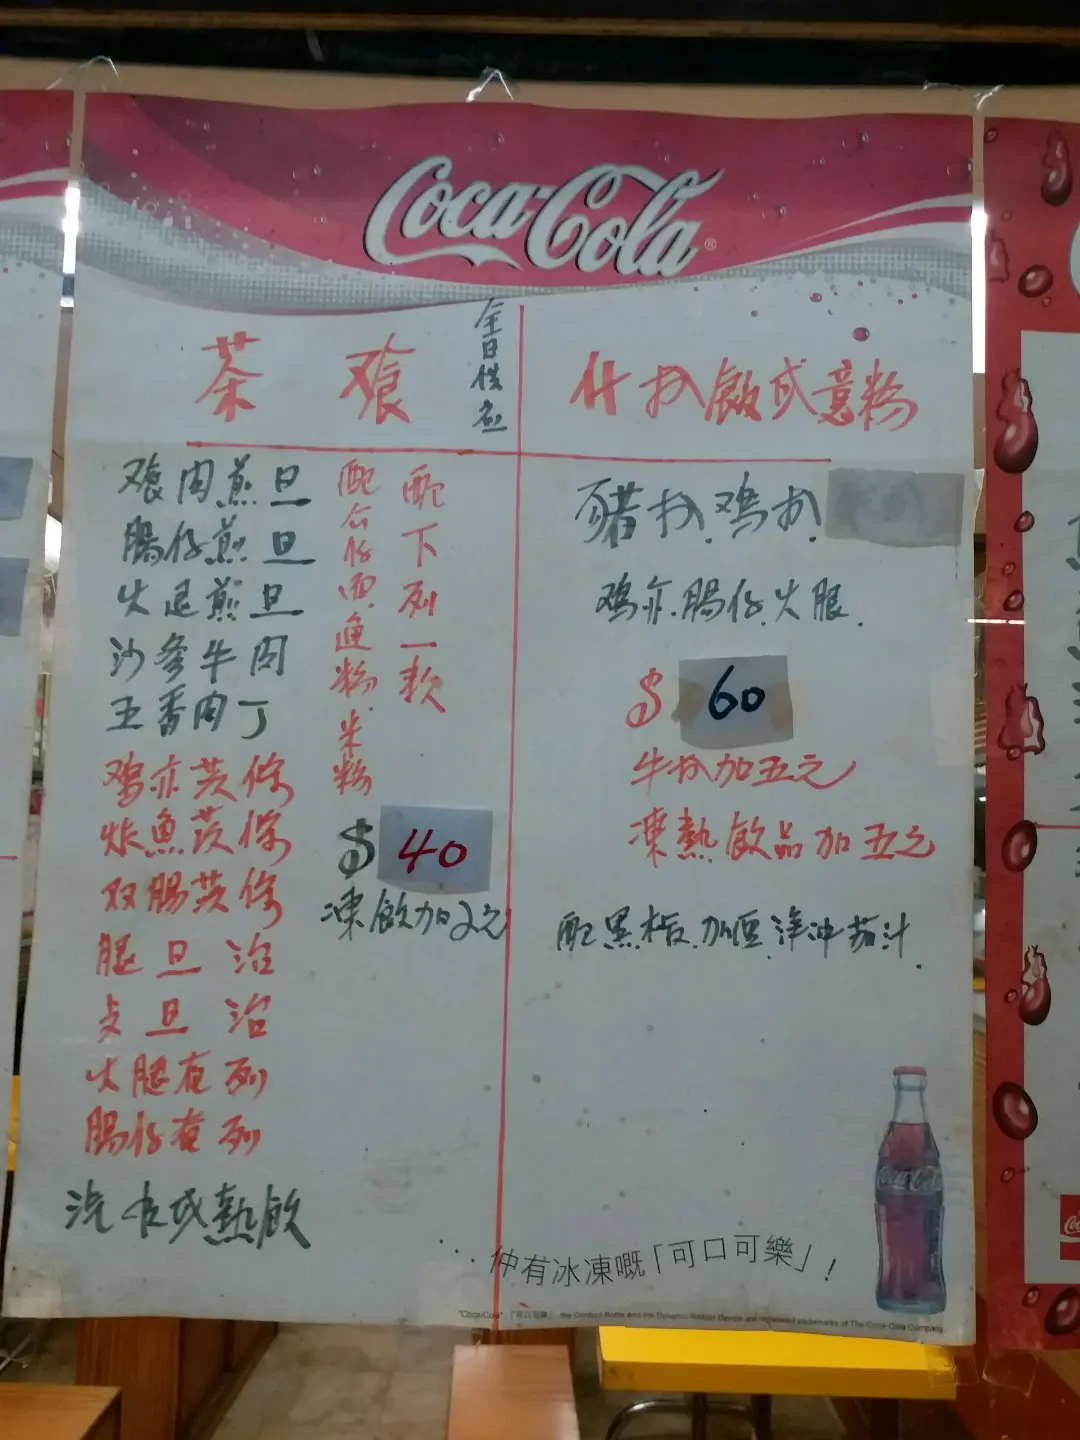 Coca-Cola®
全日供应
茶 飡
飡肉煎旦
腸仔煎旦
火退煎旦
沙爹牛肉
五香肉丁
鸡亦茨條
炸魚茨條
双腸茨條
腿旦治
支旦治
火腿奄列
腸仔奄列
汽水或熱飲
配下列一款
配公仔面.通粉.米粉
$ 40
凍飲加2元
什扒飯或意粉
豬扒.鸡扒.
鸡亦.腸仔.火腿.
$ 60
牛扒加五元
凍熱飲品加五元
配黑椒.加厘.洋冲.茄汁.
... 仲有冰凍嘅「可口可樂」!
Coca-Cola
"Coca-Cola", 「可口可樂」, the Contour Bottle and the Dynamic Ribbon Device are registered trademarks of The Coca-Cola Company.